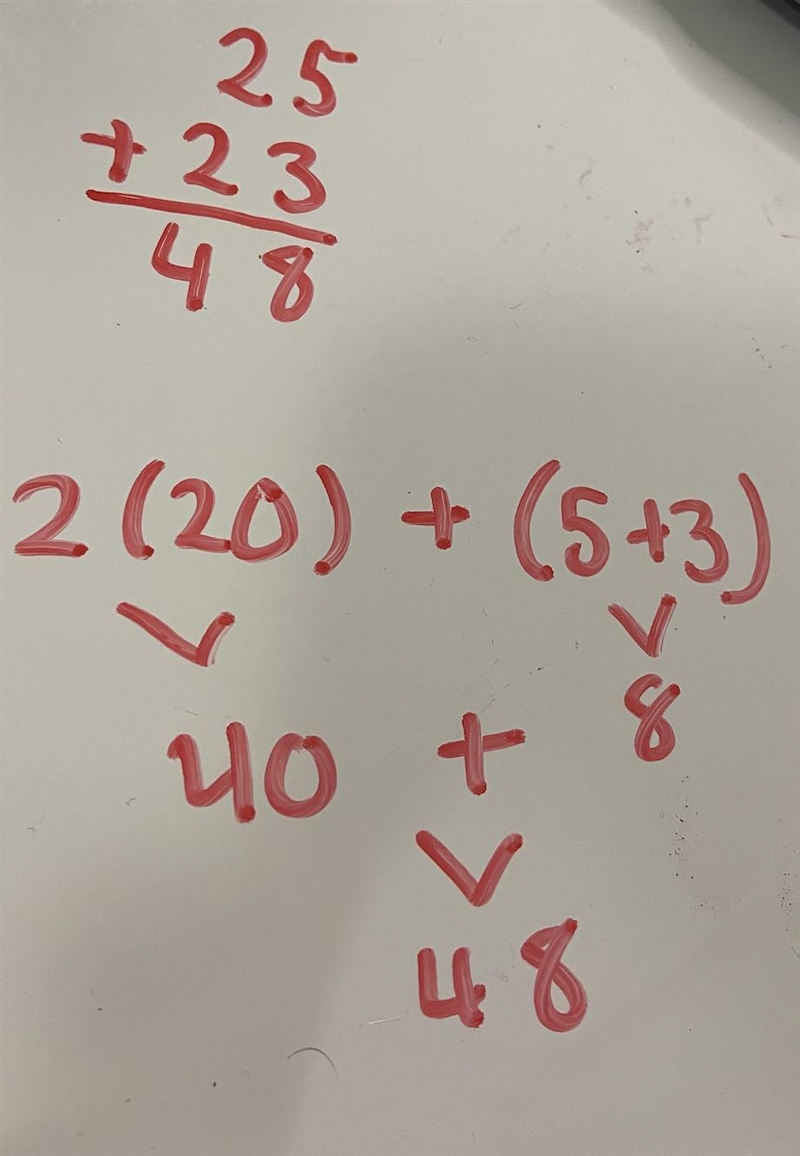 25
+ 23
48
2(20) + (5+3)
8
40 +
48